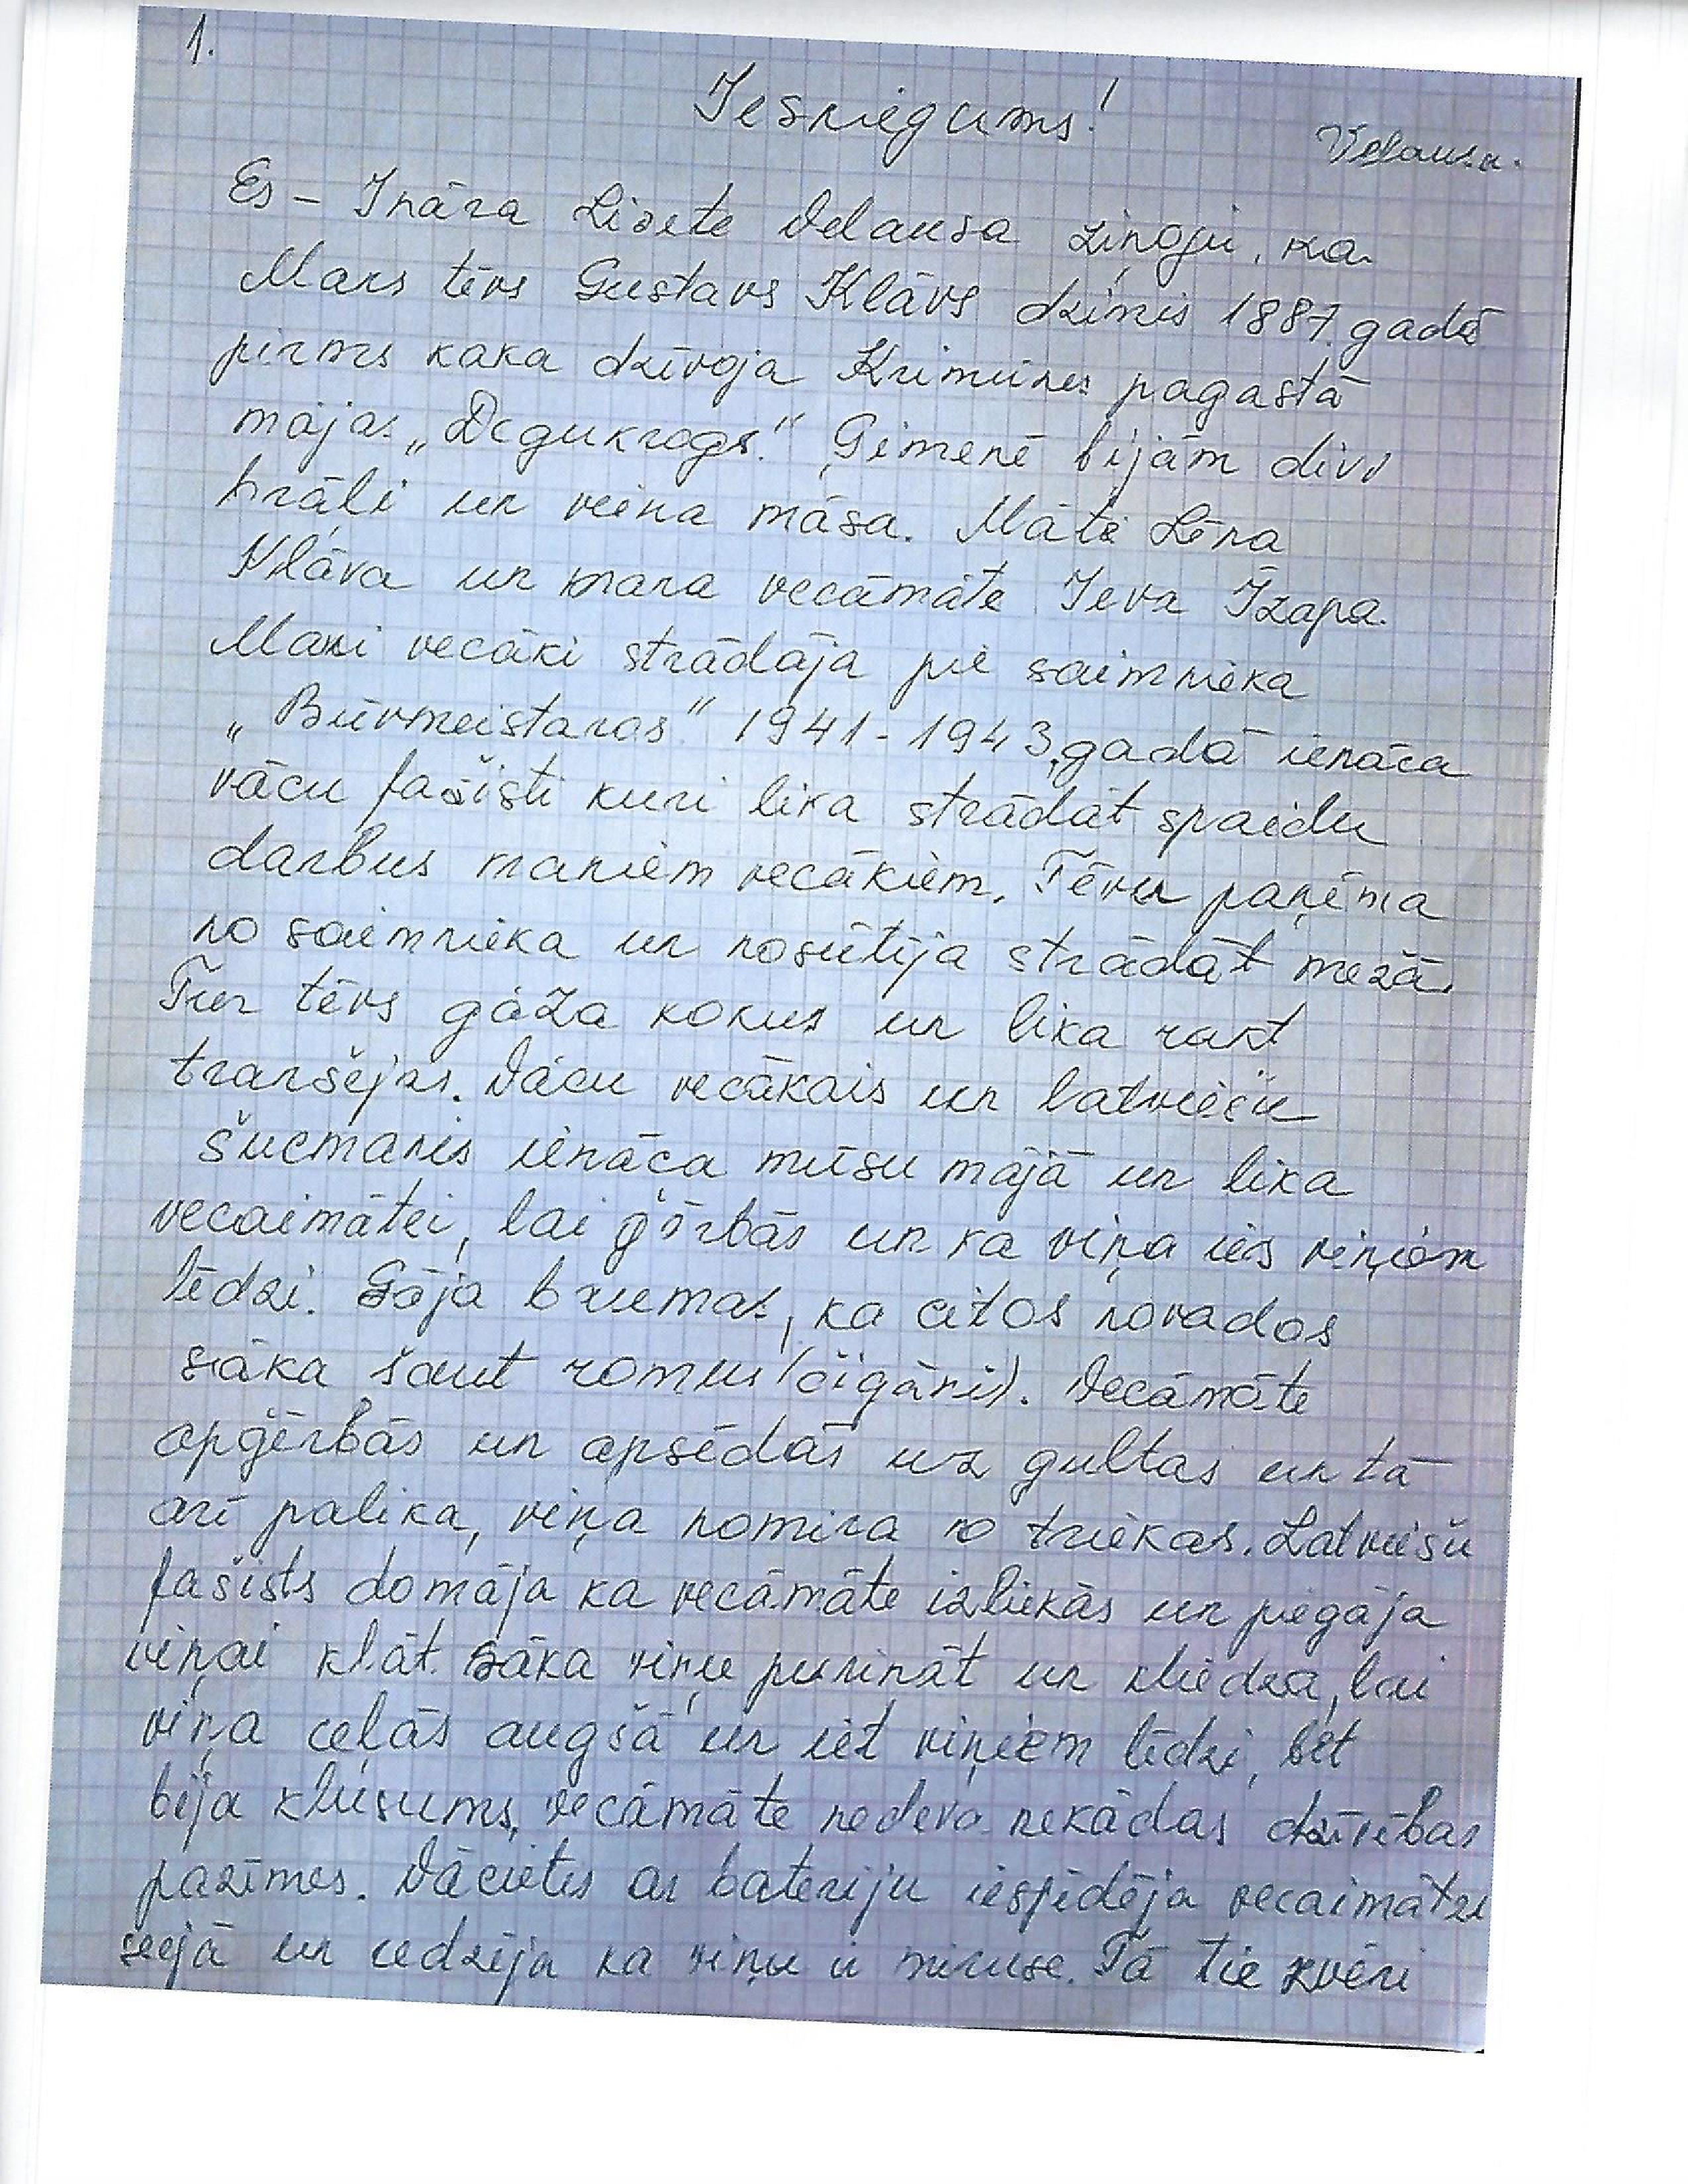 1.
Iesniegums!
Es – Ināra Lizete Velausa ziņoju, ka
Mans tēvs Gustavs Klāvs dzimis 1887. gadā
pirms kaŗa dzīvoja Krimūnes pagastā
mājas „Degukrogs." Ģimenē bijām divi
brāļi un viena māsa. Māte Lēna
Klāva un mana vecāmāte Ieva Īzapa.
Mani vecāki strādāja pie saimnieka
„Būvmeistaros" 1941-1943.gadā ienāca
vācu fašisti kuri lika strādāt spaidu
darbus maniem vecākiem. Tēvu paņēma
no saimnieka un nosūtīja strādāt mežā.
Tur tēvs gāza kokus un lika rakt
tranšejas. Vācu vecākais un latviešu
šucmanis ienāca mūsu mājā un lika
vecaimātei, lai ģērbās un ka viņa ies viņiem
līdzi. Gāja baumas, ka citos novados
sāka šaut romus (čigānis). Vecāmāte
apģērbās un apsēdās uz gultas un tā
arī palika, viņa nomira no triekas. Latviešu
fašists domāja ka vecāmāte izliekās un piegāja
viņai klāt. sāka viņu purināt un kliedza, lai
viņa ceļās augšā un iet viņiem līdzi, bet
bija klusums, vecāmāte nedeva nekādas dzīvības
pazīmes. Vācietis ar bateriju iespīdēja vecaimātei
sejā un redzēja ka viņa ir miruse. Tā tie zvēri